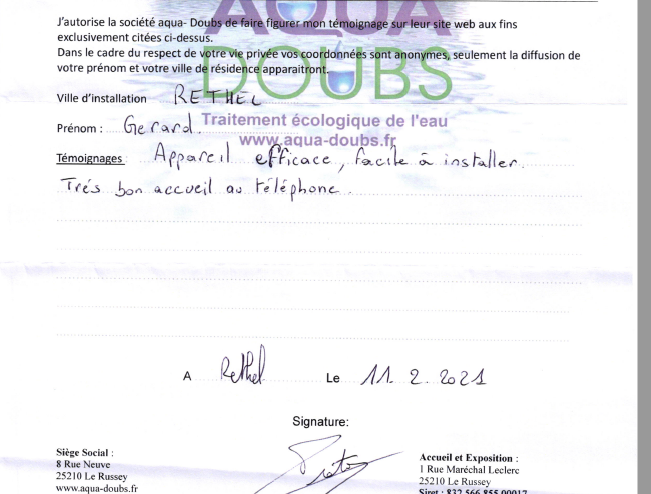 J'autorise la société aqua- Doubs de faire figurer mon témoignage sur leur site web aux fins
exclusivement citées ci-dessus.
Dans le cadre du respect de votre vie privée vos coordonnées sont anonymes, seulement la diffusion de
votre prénom et votre ville de résidence apparaitront.
AQUA
DOUBS
Ville d'installation RETHEL
Prénom : Gerard.
Traitement écologique de l'eau
www.aqua-doubs.fr
Témoignages : Appareil efficace, facile à installer.
Trés bon accueil au téléphone.
A Rethel Le 11.2.2021
Signature:
Siège Social :
8 Rue Neuve
25210 Le Russey
www.aqua-doubs.fr
Accueil et Exposition :
1 Rue Maréchal Leclerc
25210 Le Russey
Siret : 832 566 855 00017